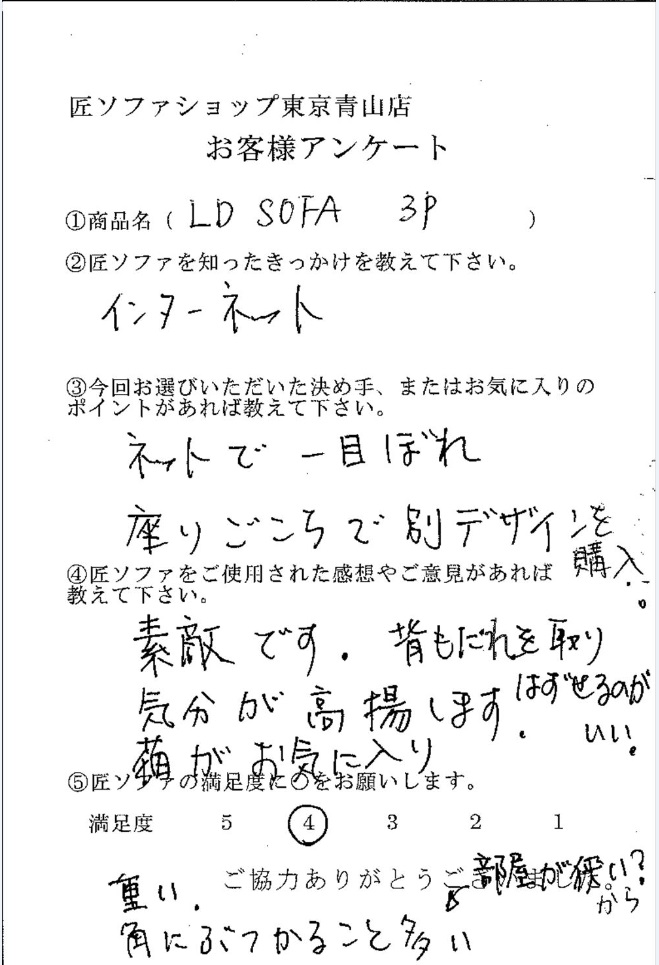 匠ソファショップ東京青山店
お客様アンケート
①商品名(LD SOFA 3P)
②匠ソファを知ったきっかけを教えて下さい。
インターネット
③今回お選びいただいた決め手、またはお気に入りの
ポイントがあれば教えて下さい。
ネットで一目ぼれ
座りごこちで別デザインを
購入.
④匠ソファをご使用された感想やご意見があれば
教えて下さい。
素敵です.
気分が高揚します.
猫がお気に入り
背もたれを取り
はずせるのが
いい.
⑤匠ソファの満足度に○をお願いします。
満足度 5 4 3 2 1
ご協力ありがとうございました。
重い.
角にぶつかること多い
部屋が狭い?
から